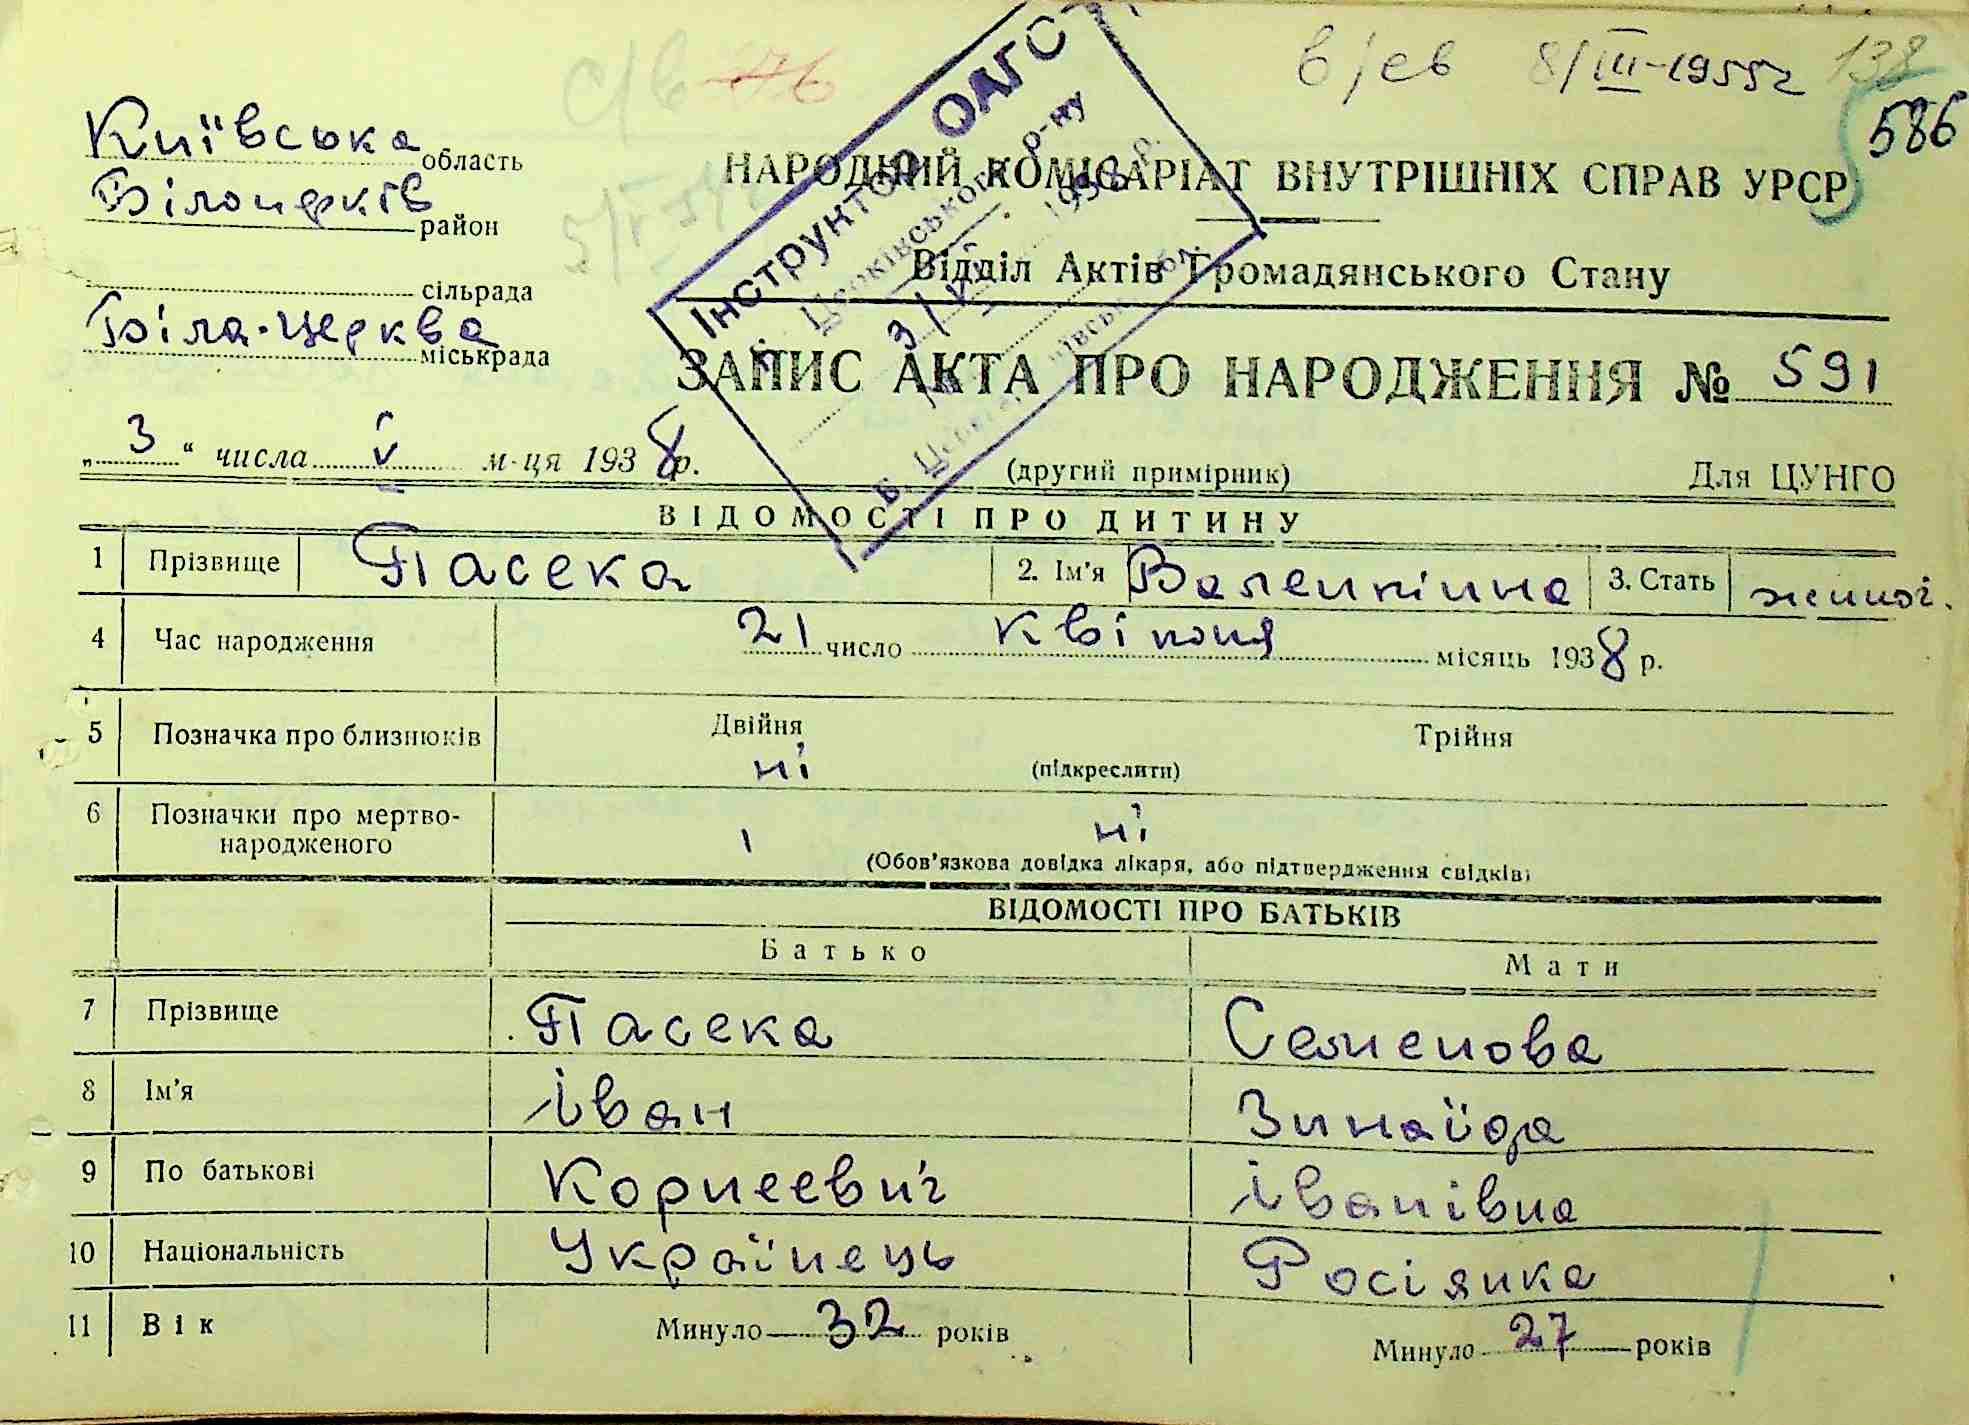 в/св 8/III-1955г 138
с/в 76
586
Київська область
Білоцерків район
сільрада
Біла-Церква міськрада
НАРОДНИЙ КОМІСАРІАТ ВНУТРІШНІХ СПРАВ УРСР
Відділ Актів Громадянського Стану
Інструктор ОАГС
Б. Церківського р-ну
3/V 1938 р.
ЗАПИС АКТА ПРО НАРОДЖЕННЯ № 591
„3“ числа V м-ця 1938 р.
(другий примірник)
Для ЦУНГО
ВІДОМОСТІ ПРО ДИТИНУ
1 Прізвище Пасека 2. Ім'я Валентіна 3. Стать жиноч.
4 Час народження 21 число Квітня місяць 1938 р.
5 Позначка про близнюків Двійня ні (підкреслити) Трійня
6 Позначки про мертво-
народженого ні
(Обов'язкова довідка лікаря, або підтвердження свідків)
ВІДОМОСТІ ПРО БАТЬКІВ
Батько Мати
7 Прізвище Пасека Семенова
8 Ім'я Іван Зинаїда
9 По батькові Корнеевич Іванівна
10 Національність Українець Росіянка
11 Вік Минуло 32 років Минуло 27 років